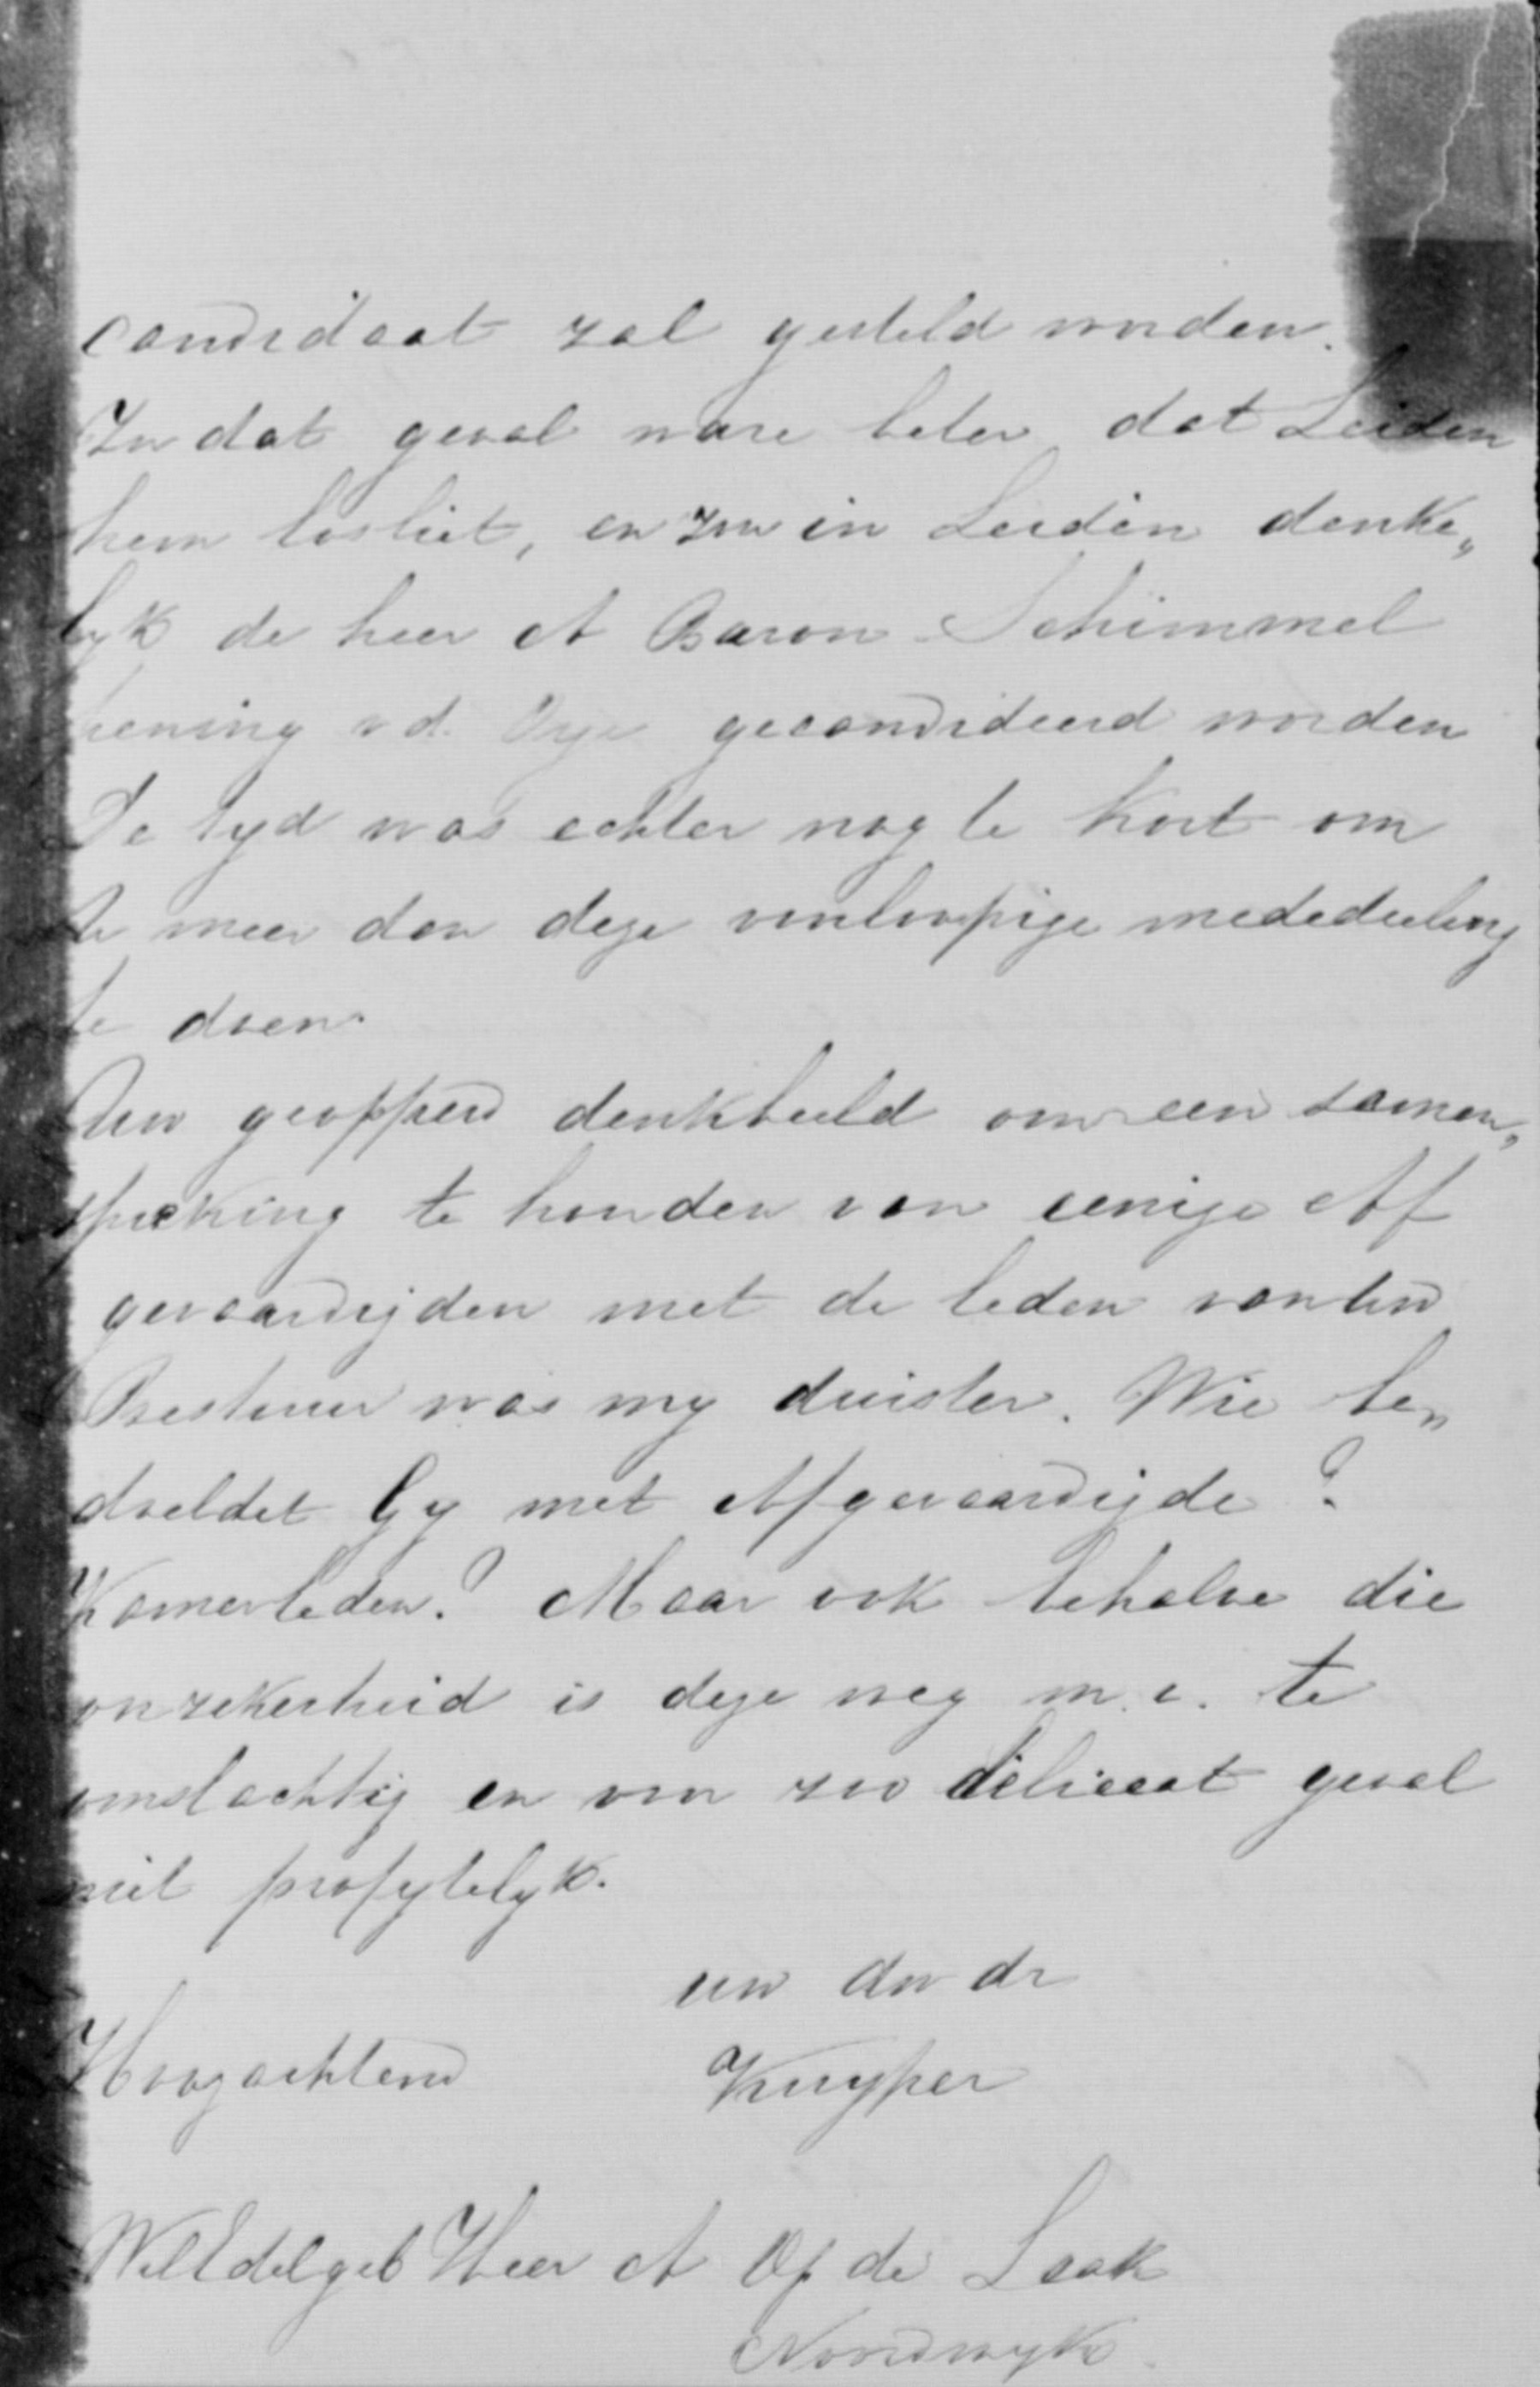 candidaat zal gesteld worden.
In dat geval ware beter dat Leiden
hem losliet, en zou in Leiden denke„
lyk de heer A Baron Schimmel
pening v d. Oye gecandideerd worden
De tyd was echter nog te kort om
U meer dan deze voorloopige mededeeling
te doen.
Uw geopperd denkbeeld om een samen„
spreking te houden van eenige Af
gevaardigden met de leden van Uw
Bestuur was my duister. Wie be„
doeldet Gy met Afgevaardigde?
Kamerleden? Maar ook behalve die
onzekerheid is deze weg m.i. te
omslachtig en voor zoo delicaat geval
niet profytelyk.
uw dw dr
Hoogachtend Kuyper
WelEdelgeb Heer A Op de Laak
Noordwyk.